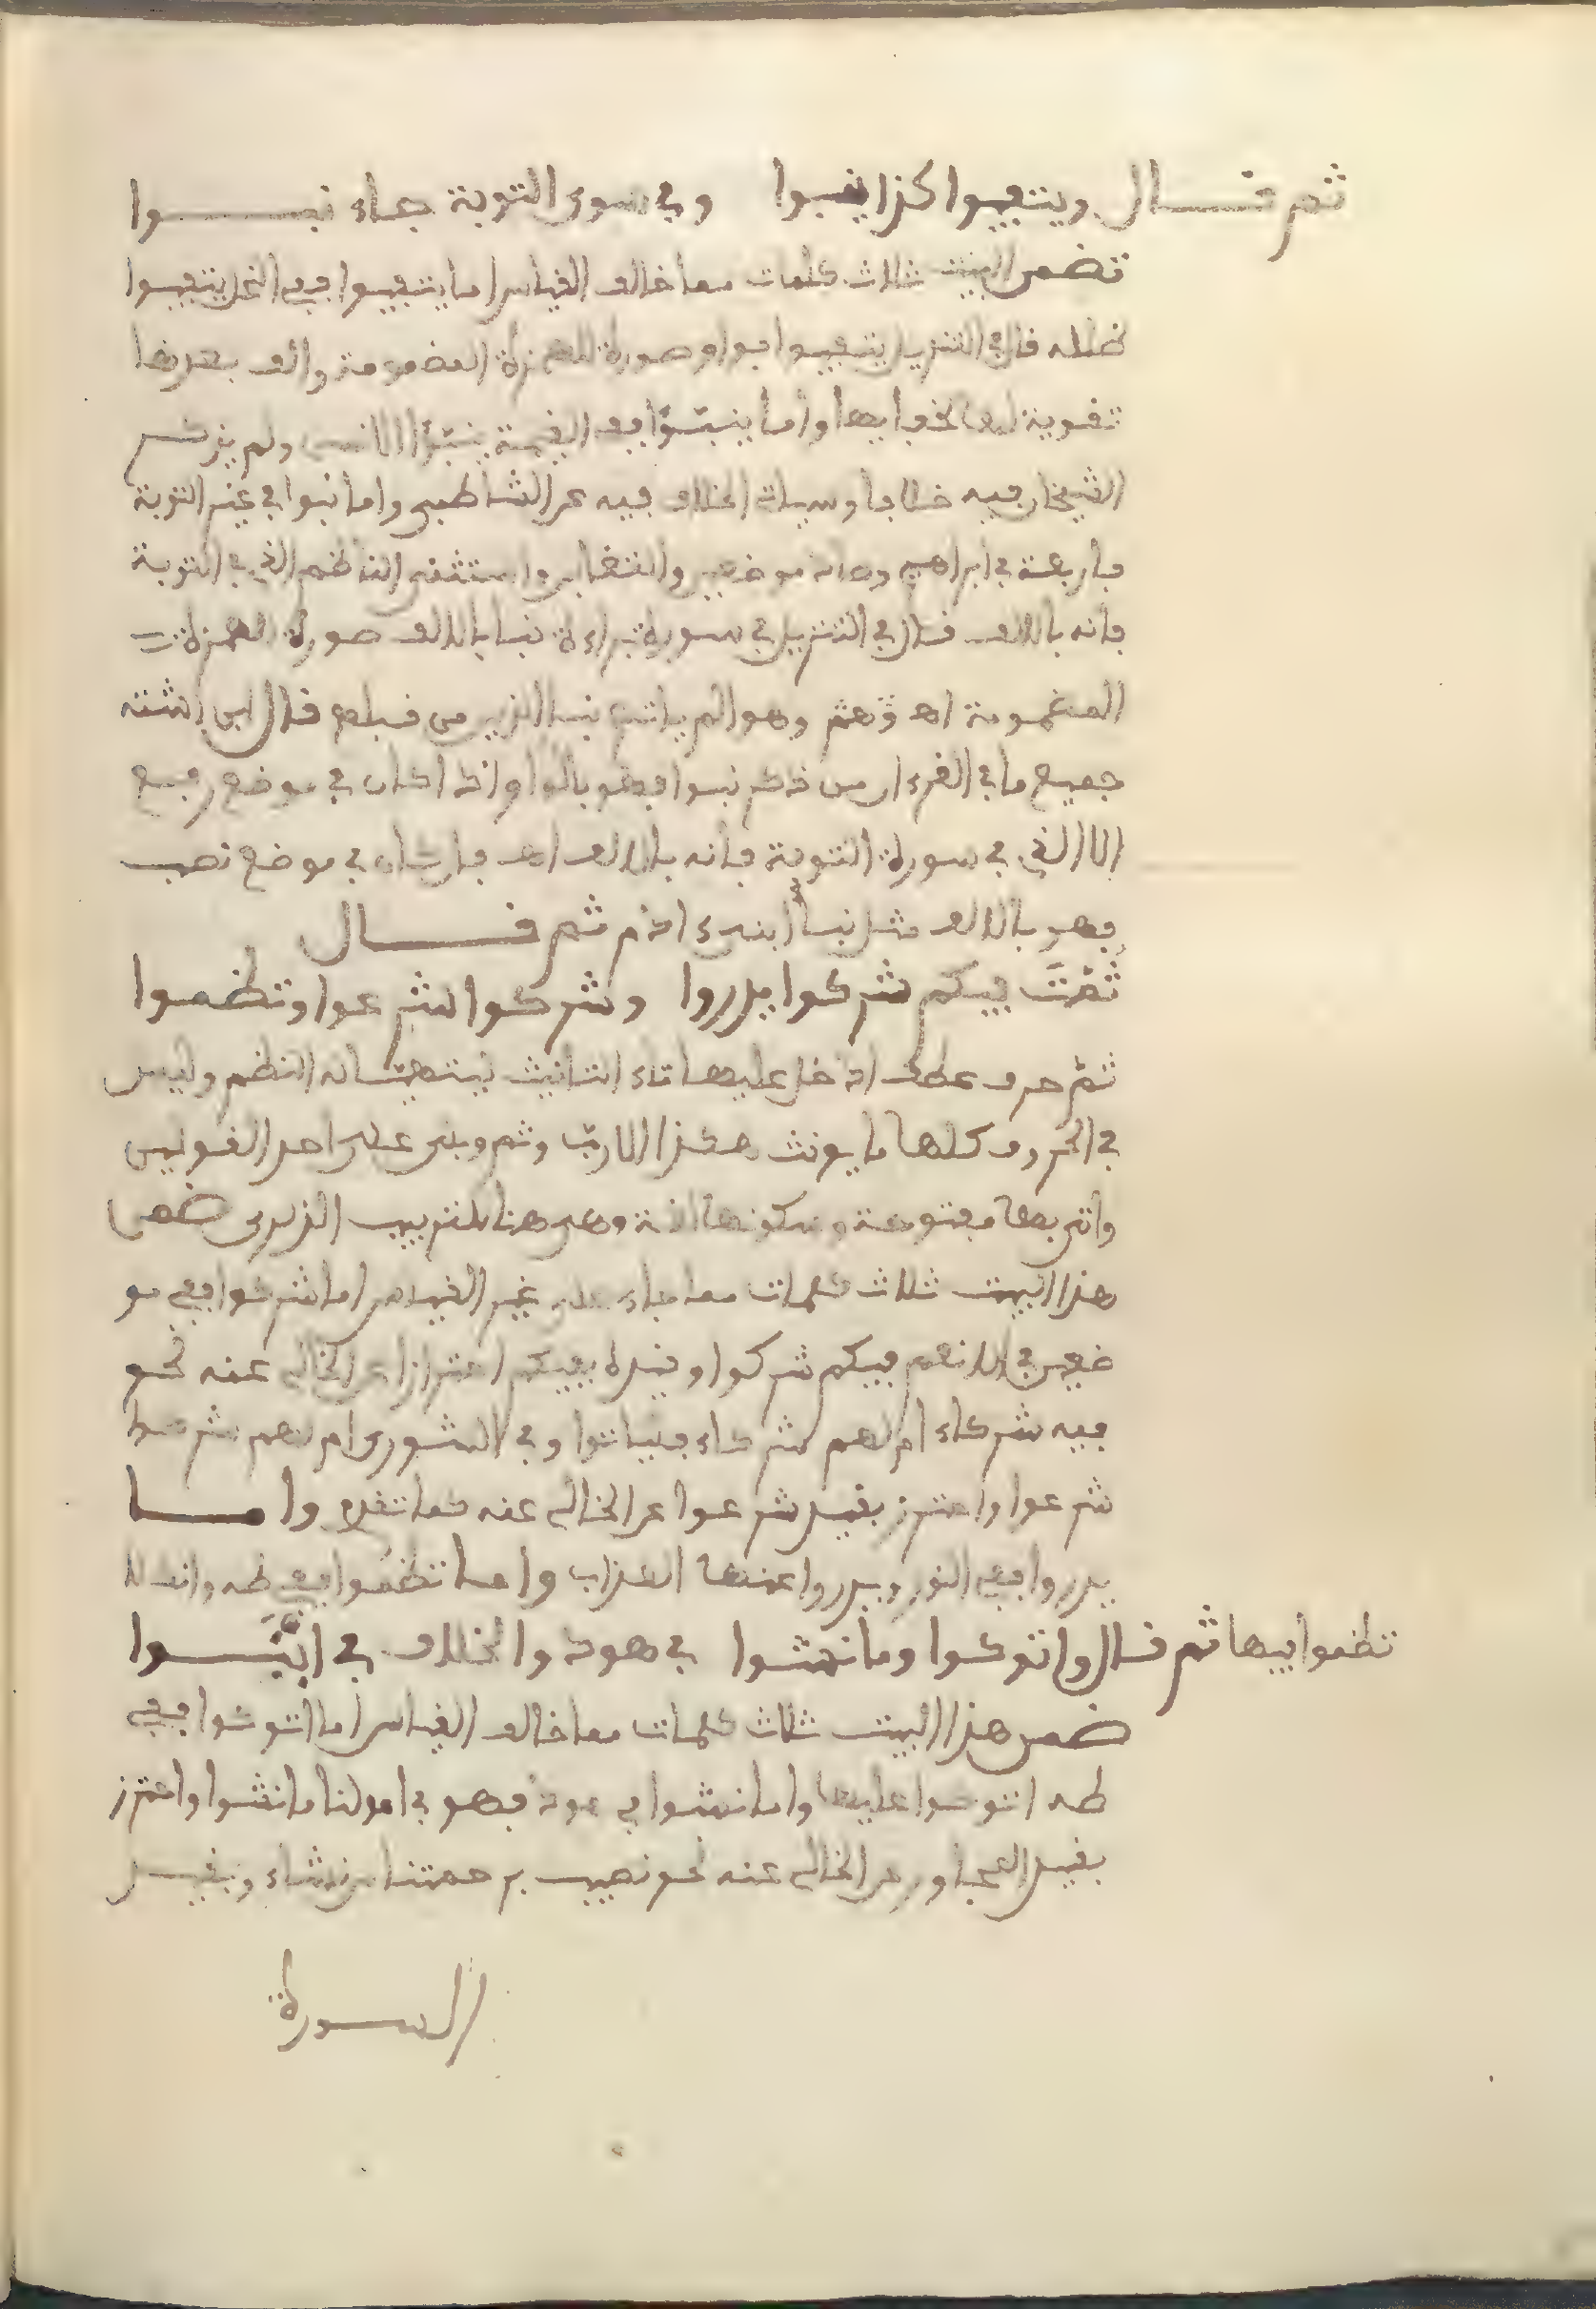 ثم قـــال ويتفيـوا كذا ينبـوا وفي سوى التوبة جاء نبـــوا
تضمن البيت ثلاث كلمات مما خالف القياس اما يتفيـوا ففي النحل يتفيـوا
ظلله قال في التنزيل يتفيـوا بواو صورة للهمزة المضمومة والف بعدها
تقوية لها لخفايها واما ينبـؤا ففي القيمة ينبـؤا الانسن ولم يذكر
الشيخان فيه خلافا وسيات الخلاف فيه عن الشاطبي واما نبوا في غير التوبة
فاربعة في ابراهيم وصاد موضعين والتغابن واستثنى الناظم الذي في التوبة
فانه بالالف قال في التنزيل في سورة براءة نبا بالالف صورة للهمزة
المضمومة اهـ وهو الم ياتهم نبا الذين من قبلهم قال ابن اشته
جميع ما في القرءان من ذكر نبوا فهو بالواو اذا كان في موضع رفع
الا الذي في سورة التوبة فانه بالالف اهـ فان كان في موضع نصب
فهو بالالف مثل نبأ ابنى ءادم ثم قـــال
ثمّتَ فيكم شركوا يدرءوا وشركوا شرعوا وتظمـوا
ثمّ حرف عطف ادخل عليها تاء التانيث ليتهيّـا له النظم وليس
في الحروف كلها ما يونث هكذا الا ربّ وثم وبنى على احد القولين
واتى بها مفتوحة وسكونها لغة وهي هنا للترتيب الذكرى ضمن
هذا البيت ثلاث كلمات مما جاء على غير القياس اما شركوا ففي مو
ضعين في الانعم فيكم شركوا وقيده بفيكم احترازا عن الخالي عنه نحو
فيه شركاء ام لهم شركاء فلياتوا وفي الشورى ام لهم شركوا
شرعوا واحترز بقيد شرعوا عن الخالي عنه كما تقدم وامـــا
يدروا ففي النور ويدروا عنها العذاب واما تظمؤا ففي طه وانك لا
تظموا فيها ثم قـال واتوكـوا وما نشـوا في هود والخلاف في انبّـــوا
ضمن هذا البيت ثلاث كلمات مما خالف القياس اما اتوكـوا ففي
طه اتوكـوا عليها واما نشـوا في هود فهو في امولنا ما نشـوا واحترز
بقيد المجاور عن الخالي عنه نحو نصيب برحمتنا من نشاء وبقيـد
السـورة